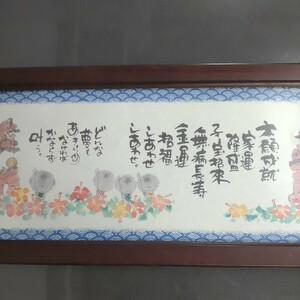 大願成就
家運
隆盛
子宝招来
無病長寿
金運
招福
しあわせ
しあわせ。
どんな
夢も
あきらめ
なければ
かならず
叶う。